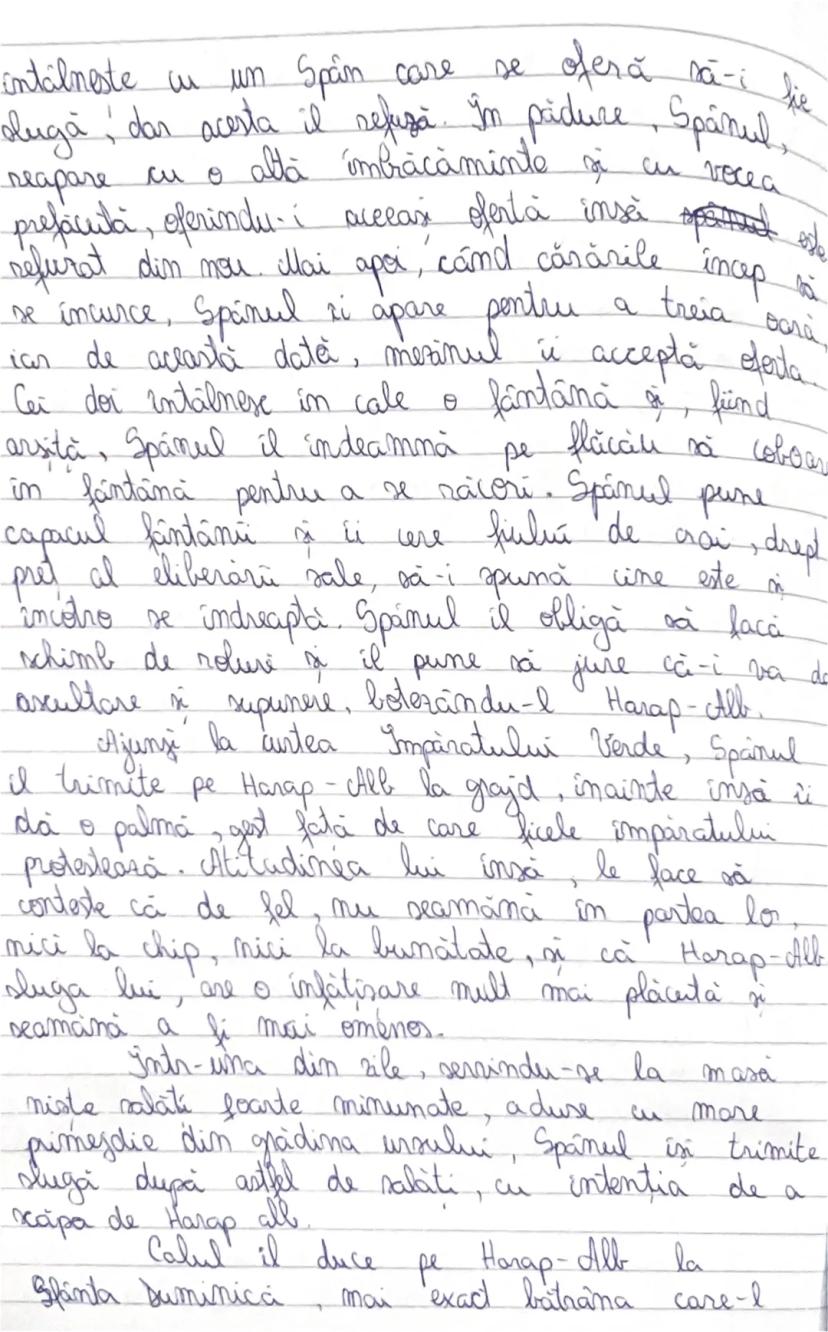 întâlnește cu un Spân care se oferă să-i fie
slugă, dar acesta îl refuză. În pădure, Spânul,
reapare cu o altă îmbrăcăminte și cu vocea
prefăcută, oferindu-i aceeași ofertă însă spânul este
refuzat din nou. Mai apoi, când cărările încep să
se încurce, Spânul îi apare pentru a treia oară,
iar de această dată, mezinul îi acceptă oferta.
Cei doi întâlnesc în cale o fântână și, fiind
arșiță, Spânul îl îndeamnă pe flăcău să coboar
în fântână pentru a se răcori. Spânul pune
capacul fântânii și îi cere fiului de crai, drept
preț al eliberării sale, să-i spună cine este și
încotro se îndreaptă. Spânul îl obligă să facă
schimb de roluri și îl pune să jure că-i va da
ascultare și supunere, botezându-l Harap-Alb.
Ajunși la curtea Împăratului Verde, Spânul
îl trimite pe Harap-Alb la grajd, înainte însă îi
dă o palmă, gest față de care ficele împăratului
protestează. Atitudinea lui însă, le face să
conteste că de fel, nu seamănă în partea lor,
nici la chip, nici la bunătate, și că Harap-Alb
sluga lui, are o înfățișare mult mai plăcută și
seamănă a fi mai omenos.
Într-una din zile, servindu-se la masă
niște salăti foarte minunate, aduse cu mare
primejdie din grădina ursului, Spânul își trimite
slugă după astfel de salăți, cu intenția de a
scăpa de Harap alb.
Calul îl duce pe Harap-Alb la
Sfânta Duminică, mai exact bătrâna care-l